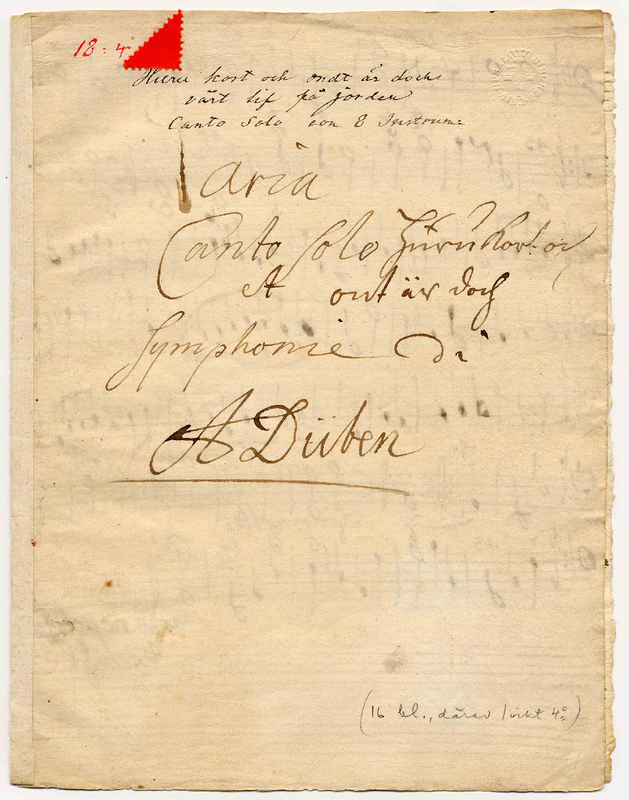 18:4
Huru kort och ondt är doch
vårt lif på jorden
Canto Solo con 8 Instrum:
Aria
Canto Solo Huru kort oc
A ont är doch
Symphonie di
A Düben
(16 bl., därav 1 vikt 4:o)